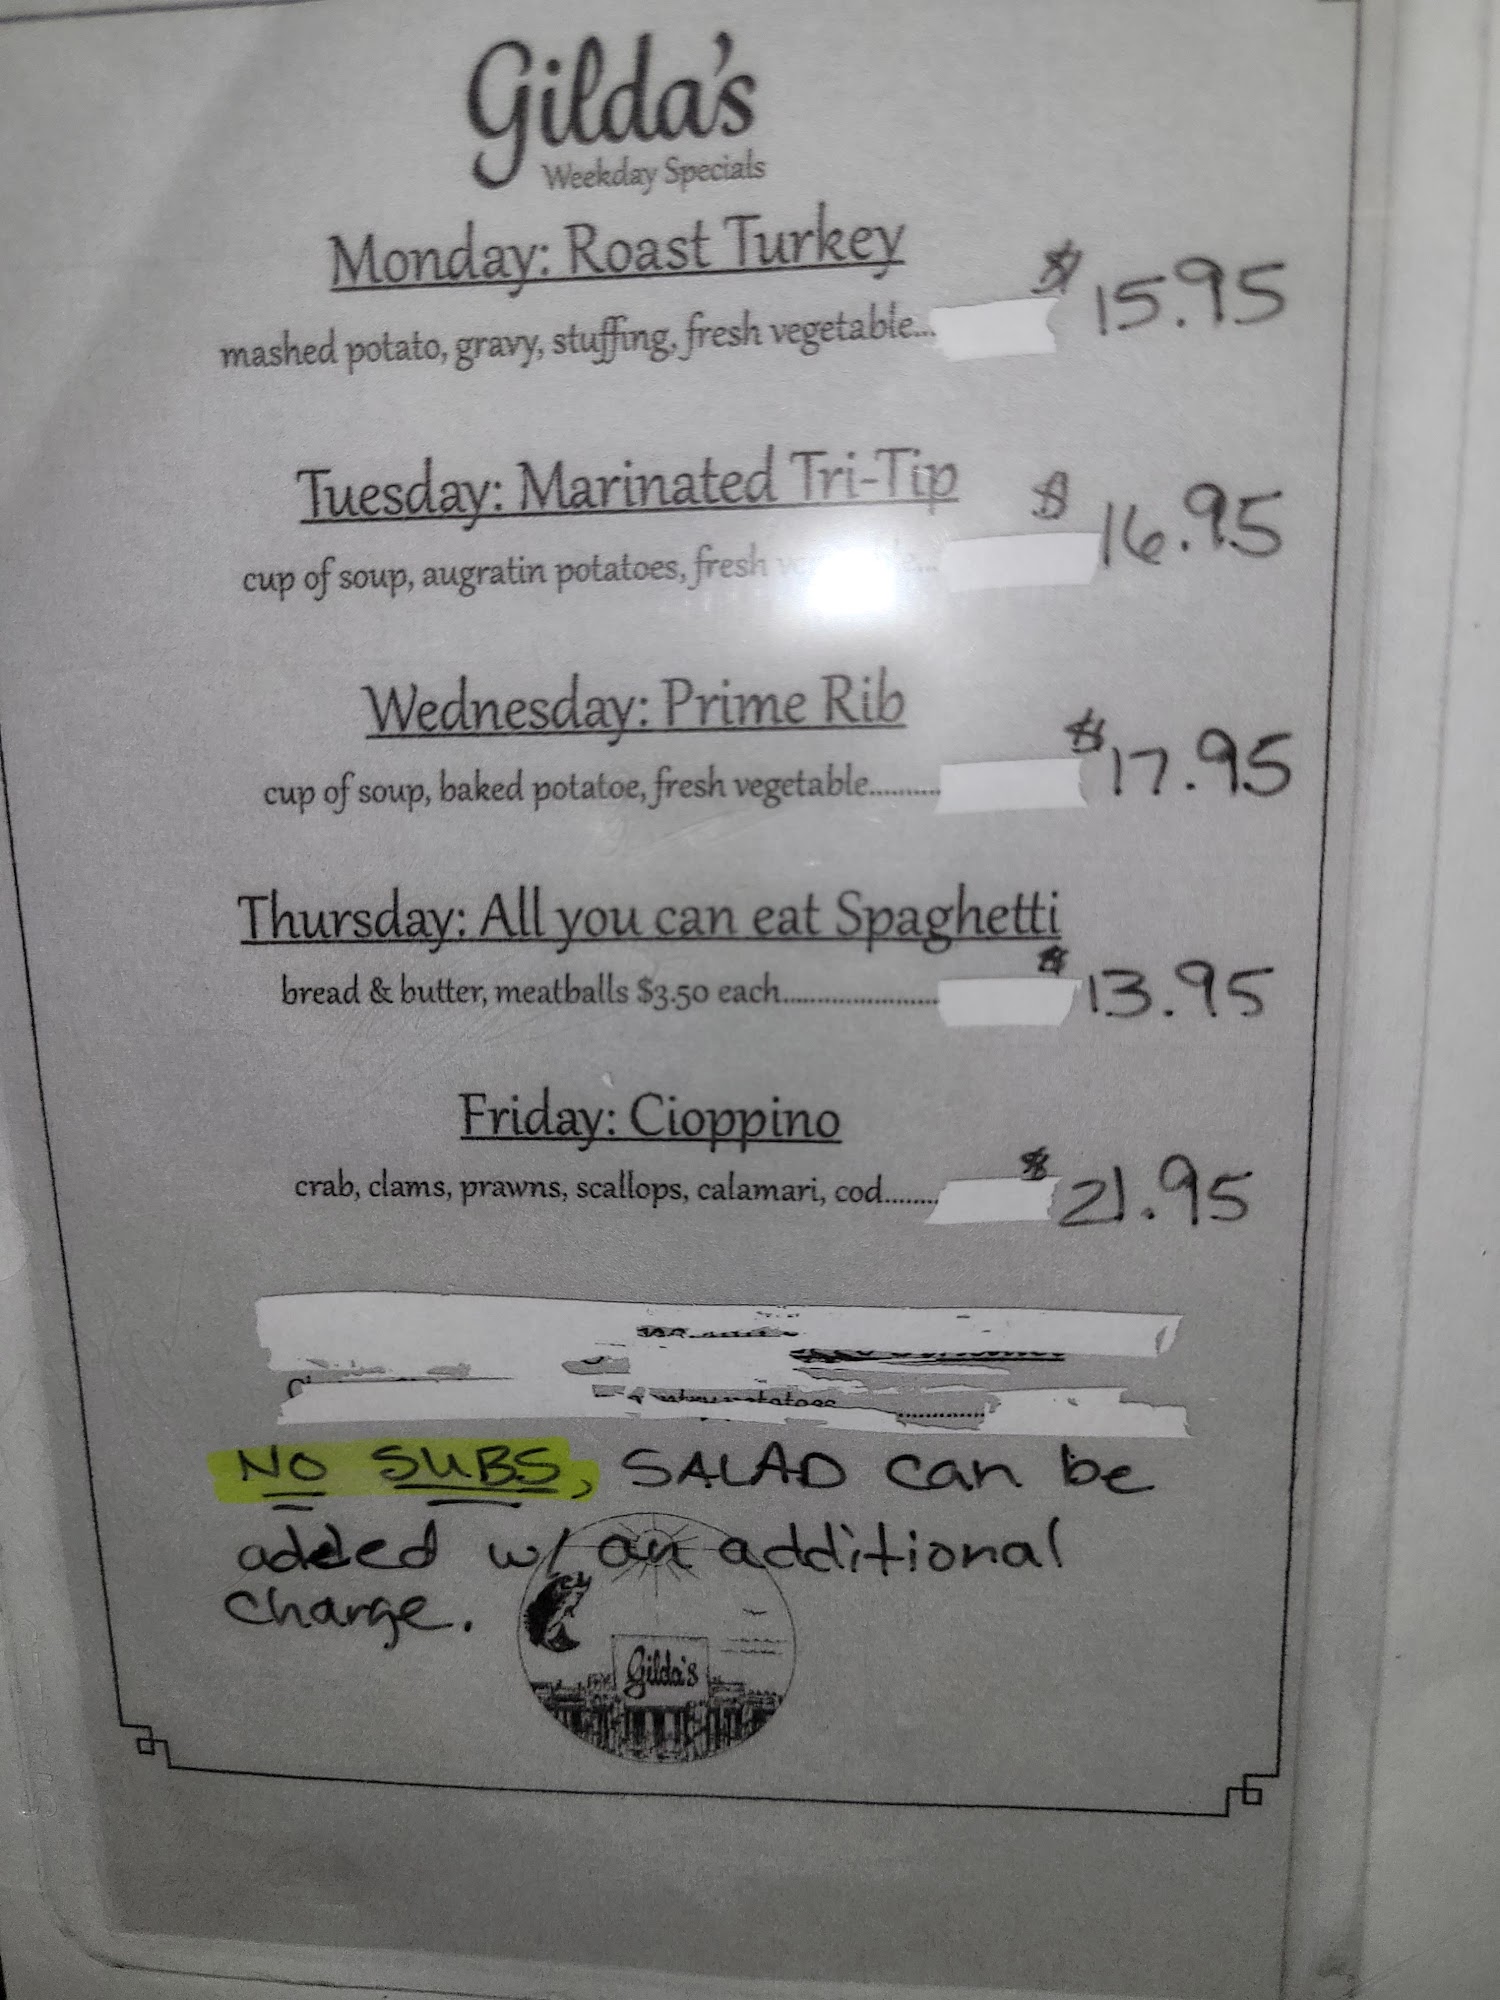 Gilda's
Weekday Specials
Monday: Roast Turkey
mashed potato, gravy, stuffing, fresh vegetable... $15.95
Tuesday: Marinated Tri-Tip
cup of soup, augratin potatoes, fresh $16.95
Wednesday: Prime Rib
cup of soup, baked potatoe, fresh vegetable.......... $17.95
Thursday: All you can eat Spaghetti
bread & butter, meatballs $3.50 each....................... $13.95
Friday: Cioppino
crab, clams, prawns, scallops, calamari, cod........ $21.95
NO SUBS, SALAD can be
added w/ an additional
charge.
Gilda's